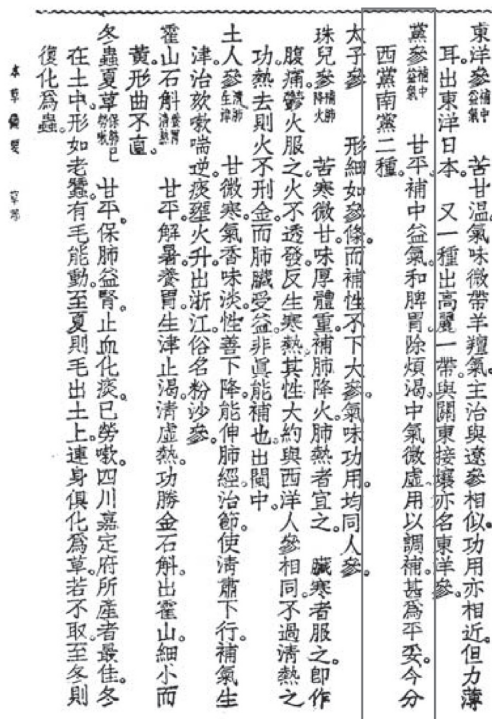 東洋參補中益氣　苦甘溫氣味微帶羊羶氣。主治與遼參相似。功用亦相近。但力薄
耳出東洋日本。　又一種出高麗一帶。與關東接壤。亦名東洋參。
黨參補中益氣　甘平補中益氣。和脾胃除煩渴。中氣微虛用以調補。甚爲平妥。今分
西黨南黨二種。
太子參　形細如參條。而補性不下大參。氣味功用均同人參。
珠兒參補肺降火　苦寒微甘味厚體重。補肺降火。肺熱者宜之。　臟寒者服之。卽作
腹痛。鬱火服之。火不透發。反生寒熱。其性大約與西洋人參相同。不過清熱之
功。熱去則火不刑金。而肺臟受益。非眞能補也。出閩中。
土人參清肺生津　甘微寒氣香味淡。性善下降。能伸肺經治節。使清肅下行。補氣生
津。治欬嗽喘逆痰壅火升。出浙江。俗名粉沙參。
霍山石斛養胃清熱　甘平解暑。養胃生津。止渴。清虛熱。功勝金石斛。出霍山。細小而
黃。形曲不直。
冬蟲夏草保肺已勞嗽　甘平。保肺益腎。止血化痰。已勞嗽。四川嘉定府所產者最佳。冬
在土中。形如老蠶。有毛能動。至夏則毛出土上。連身俱化爲草。若不取。至冬則
復化爲蟲。
本草備要　草部